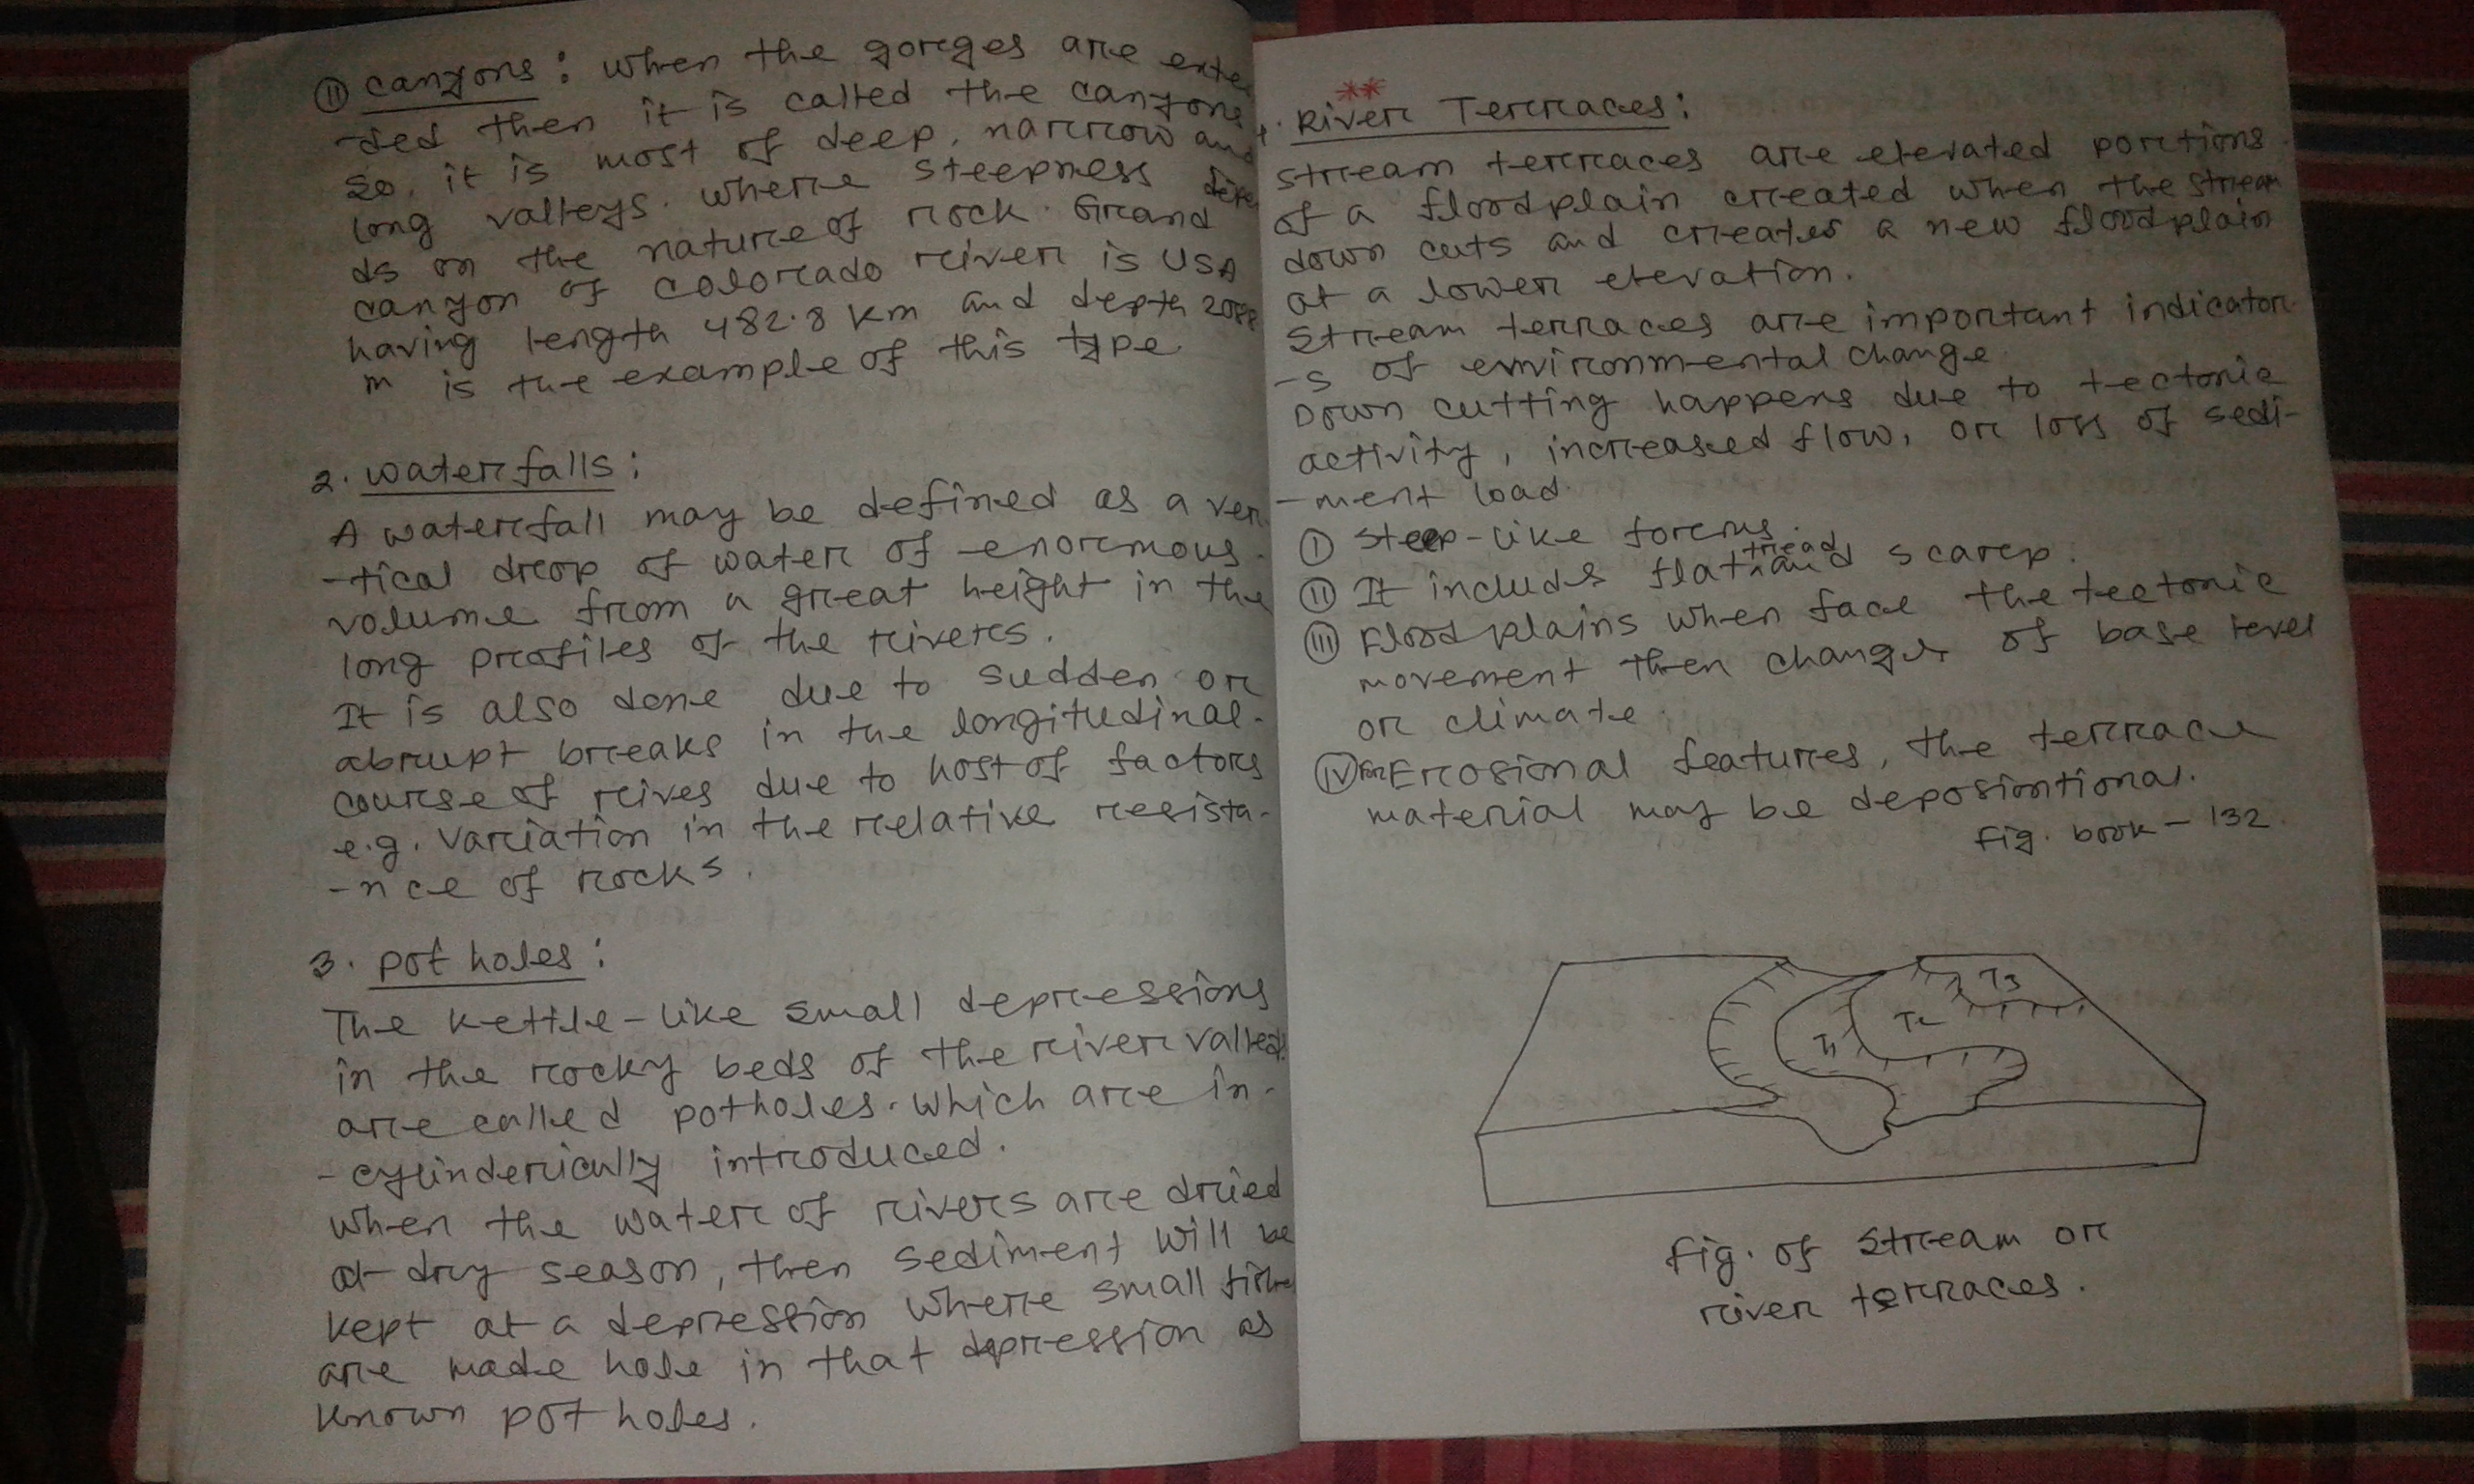 (II) Canyons: when the gorges are exte
-ded then it is called the canyons
so, it is most of deep, narrow and
long valleys. where steepness depe
ds on the nature of rock. Grand
canyon of colorado river is USA
having length 482.8 km and depth 2088
m is the example of this type
2. waterfalls:
A waterfall may be defined as a ver
-tical drop of water of enormous
volume from a great height in the
long profiles of the rivers.
It is also done due to sudden or
abrupt breaks in the longitudinal
course of rives due to host of factors
e.g. variation in the relative resista-
-nce of rocks.
3. pot holes:
The kettle-like small depressions
in the rocky beds of the river valleys
are called potholes. which are in-
-cylinderically introduced.
when the water of rivers are dried
at dry season, then sediment will be
kept at a depression where small
are made hole in that depression as
known pot holes.
**
4. River Terraces:
stream terraces are elevated portions
of a floodplain created when the stream
down cuts and creates a new floodplain
at a lower elevation.
Stream terraces are important indicator
-s of environmental change
Down cutting happens due to tectonic
activity, increased flow, or loss of sedi-
-ment load.
(I) Steep-like forms.
(II) It includes flat tread and scarp.
(III) Flood plains when face the tectonic
movement then changes of base level
or climate.
(IV) For Erosional features, the terrace
material may be deposiontional.
Fig. book - 132.
T3
T2
T1
Fig. of Stream or
river terraces.